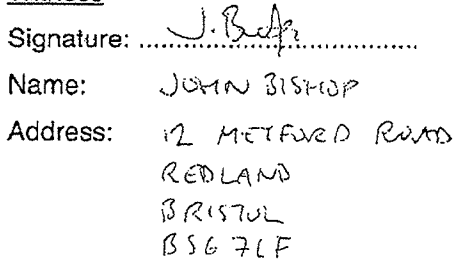 Signature: J. Bishop
Name: JOHN BISHOP
Address: 12 METFORD ROAD
REDLAND
BRISTOL
BS6 7LF